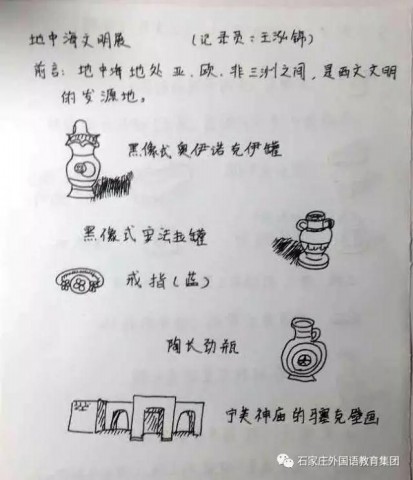 地中海文明展 (记录员:王泓锦)
前言:地中海地处亚、欧、非三洲之间,是西方文明
的发源地。
黑像式奥伊诺克伊罐
黑像式安法拉罐
戒指(蓝)
陶长劲瓶
宁芙神庙的马赛克壁画
石家庄外国语教育集团